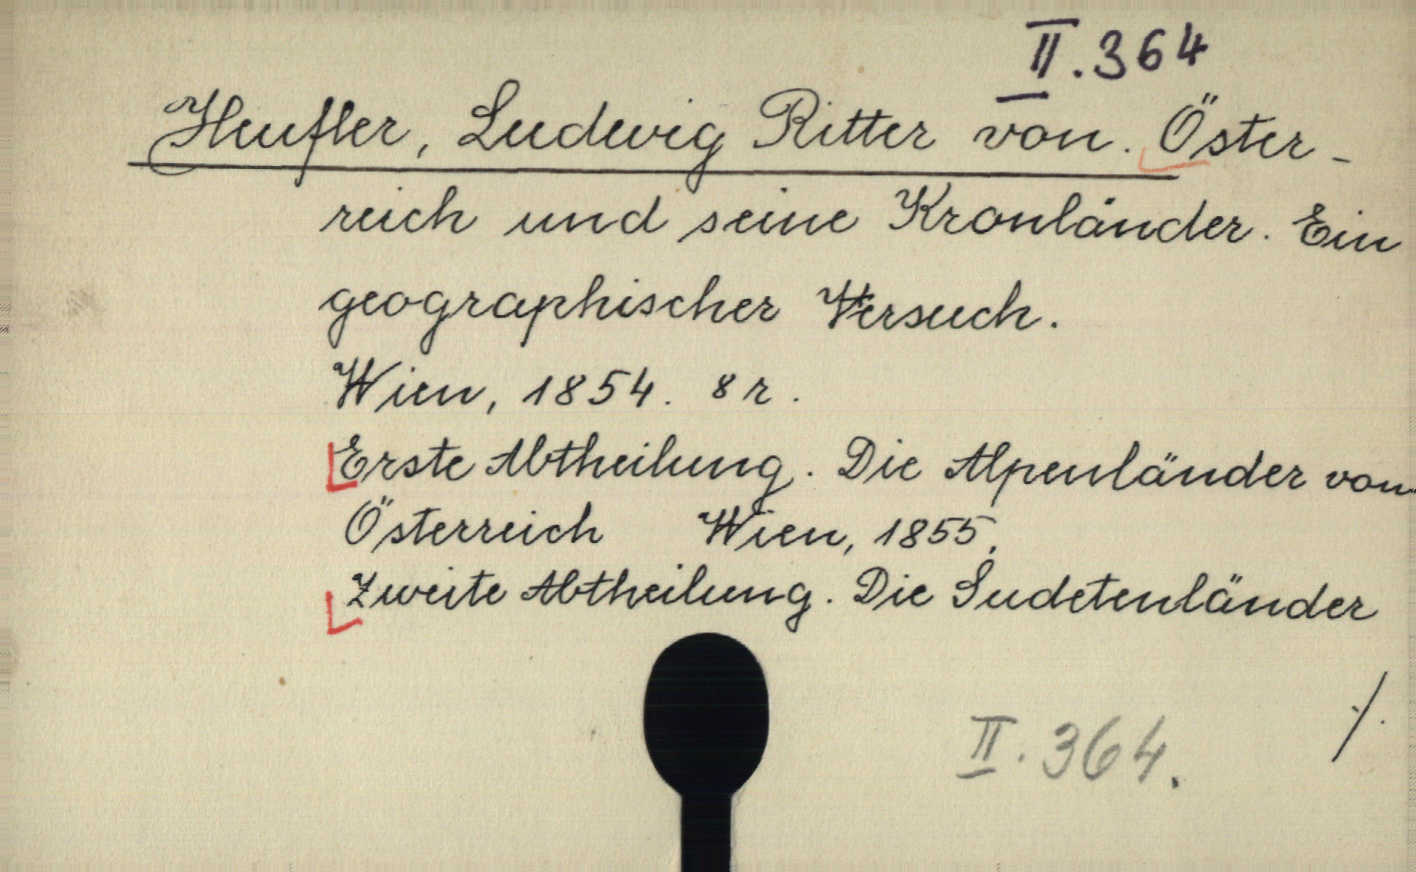 II.364
Heufler, Ludwig Ritter von. Öster-
reich und seine Kronländer. Ein
geographischer Versuch.
Wien, 1854. 8r.
Erste Abtheilung. Die Alpenländer von
Österreich Wien, 1855.
Zweite Abtheilung. Die Sudetenländer
II.364.
./.